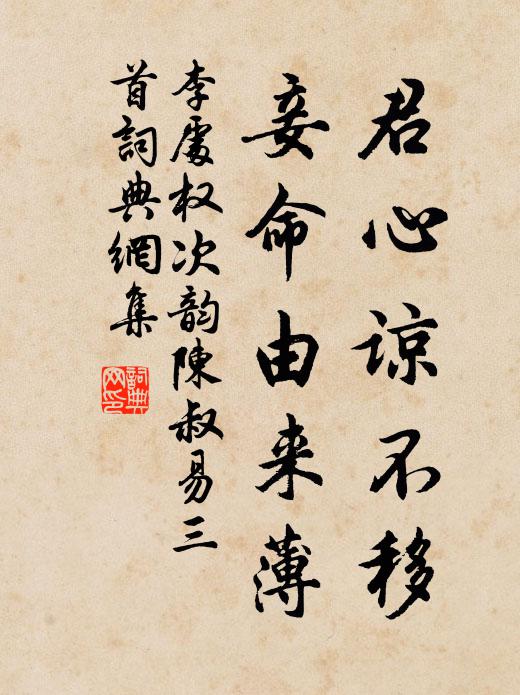 君心谅不移
妾命由来薄
李處权次韵陳叔易三
首詞典網集
詞典网印